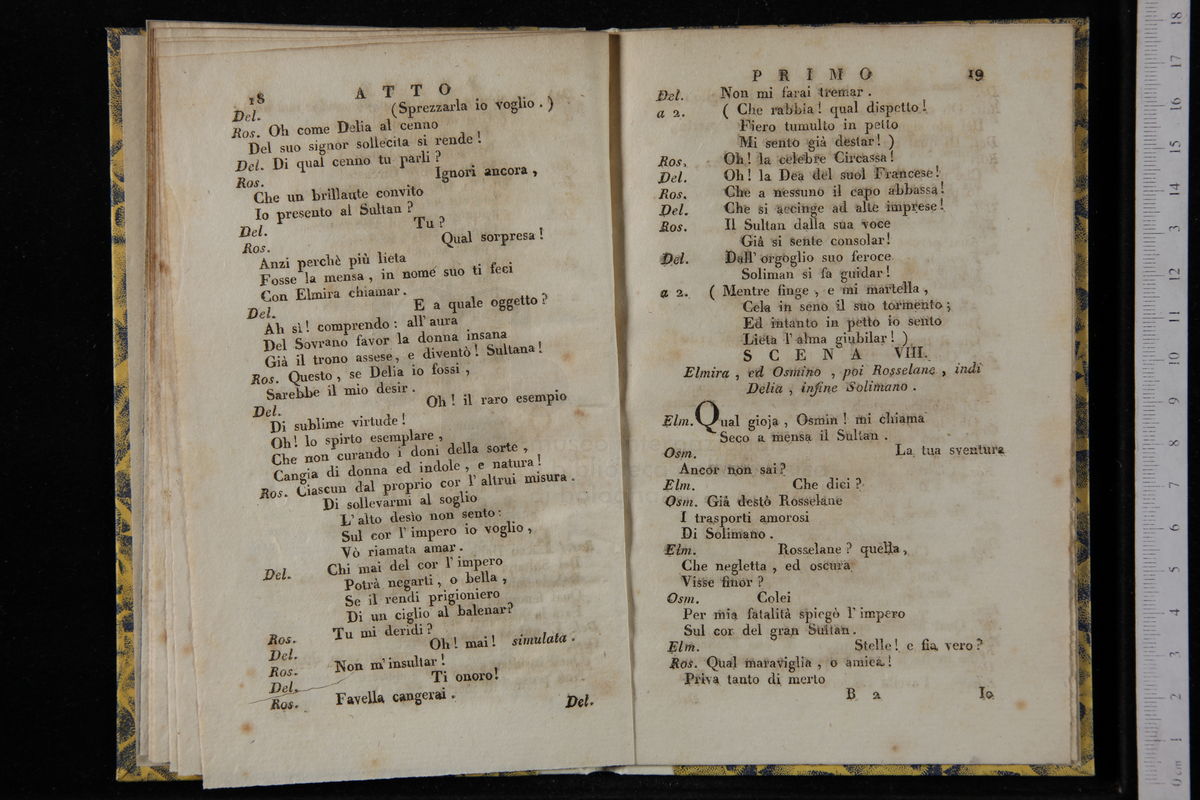 18
A T T O
Del. (Sprezzarla io voglio . )
Ros. Oh come Delia al cenno
Del suo signor sollecita si rende !
Del. Di qual cenno tu parli ?
Ros. Ignori ancora ,
Che un brillante convito
Io presento al Sultan ?
Del. Tu ?
Ros. Qual sorpresa !
Anzi perchè più lieta
Fosse la mensa , in nome suo ti feci
Con Elmira chiamar .
Del. E a quale oggetto ?
Ah sì ! comprendo : all' aura
Del Sovrano favor la donna insana
Già il trono assese, e diventò ! Sultana !
Ros. Questo , se Delia io fossi ,
Sarebbe il mio desir .
Del. Oh ! il raro esempio
Di sublime virtude !
Oh! lo spirto esemplare ,
Che non curando i doni della sorte ,
Cangia di donna ed indole , e natura !
Ros. Ciascun dal proprio cor l' altrui misura .
Di sollevarmi al soglio
L' alto desio non sento :
Sul cor l' impero io voglio ,
Vò riamata amar .
Del. Chi mai del cor l' impero
Potrà negarti , o bella ,
Se il rendi prigioniero
Di un ciglio al balenar?
Ros. Tu mi deridi ?
Del. Oh ! mai ! simulata .
Ros. Non m' insultar !
Del. Ti onoro!
Ros. Favella cangerai .
Del.
P R I M O
19
Del. Non mi farai tremar .
a 2. ( Che rabbia ! qual dispetto !
Fiero tumulto in petto
Mi sento già destar! )
Ros. Oh! la celebre Circassa!
Del. Oh! la Dea del suol Francese!
Ros. Che a nessuno il capo abbassa!
Del. Che si accinge ad alte imprese!
Ros. Il Sultan dalla sua voce
Già si sente consolar!
Del. Dall' orgoglio suo feroce
Soliman si fa guidar!
a 2. ( Mentre finge , e mi martella ,
Cela in seno il suo tormento ;
Ed intanto in petto io sento
Lieta l' alma giubilar! )
S C E N A VIII.
Elmira , ed Osmino , poi Rosselane , indi
Delia , infine Solimano .
Elm. Qual gioja , Osmin ! mi chiama
Seco a mensa il Sultan .
Osm. La tua sventura
Ancor non sai ?
Elm. Che dici ?
Osm. Già destò Rosselane
I trasporti amorosi
Di Solimano .
Elm. Rosselane ? quella ,
Che negletta , ed oscura
Visse finor ?
Osm. Colei
Per mia fatalità spiegò l' impero
Sul cor del gran Sultan .
Elm. Stelle ! e fia vero ?
Ros. Qual maraviglia , o amica !
Priva tanto di merto
B 2
Io